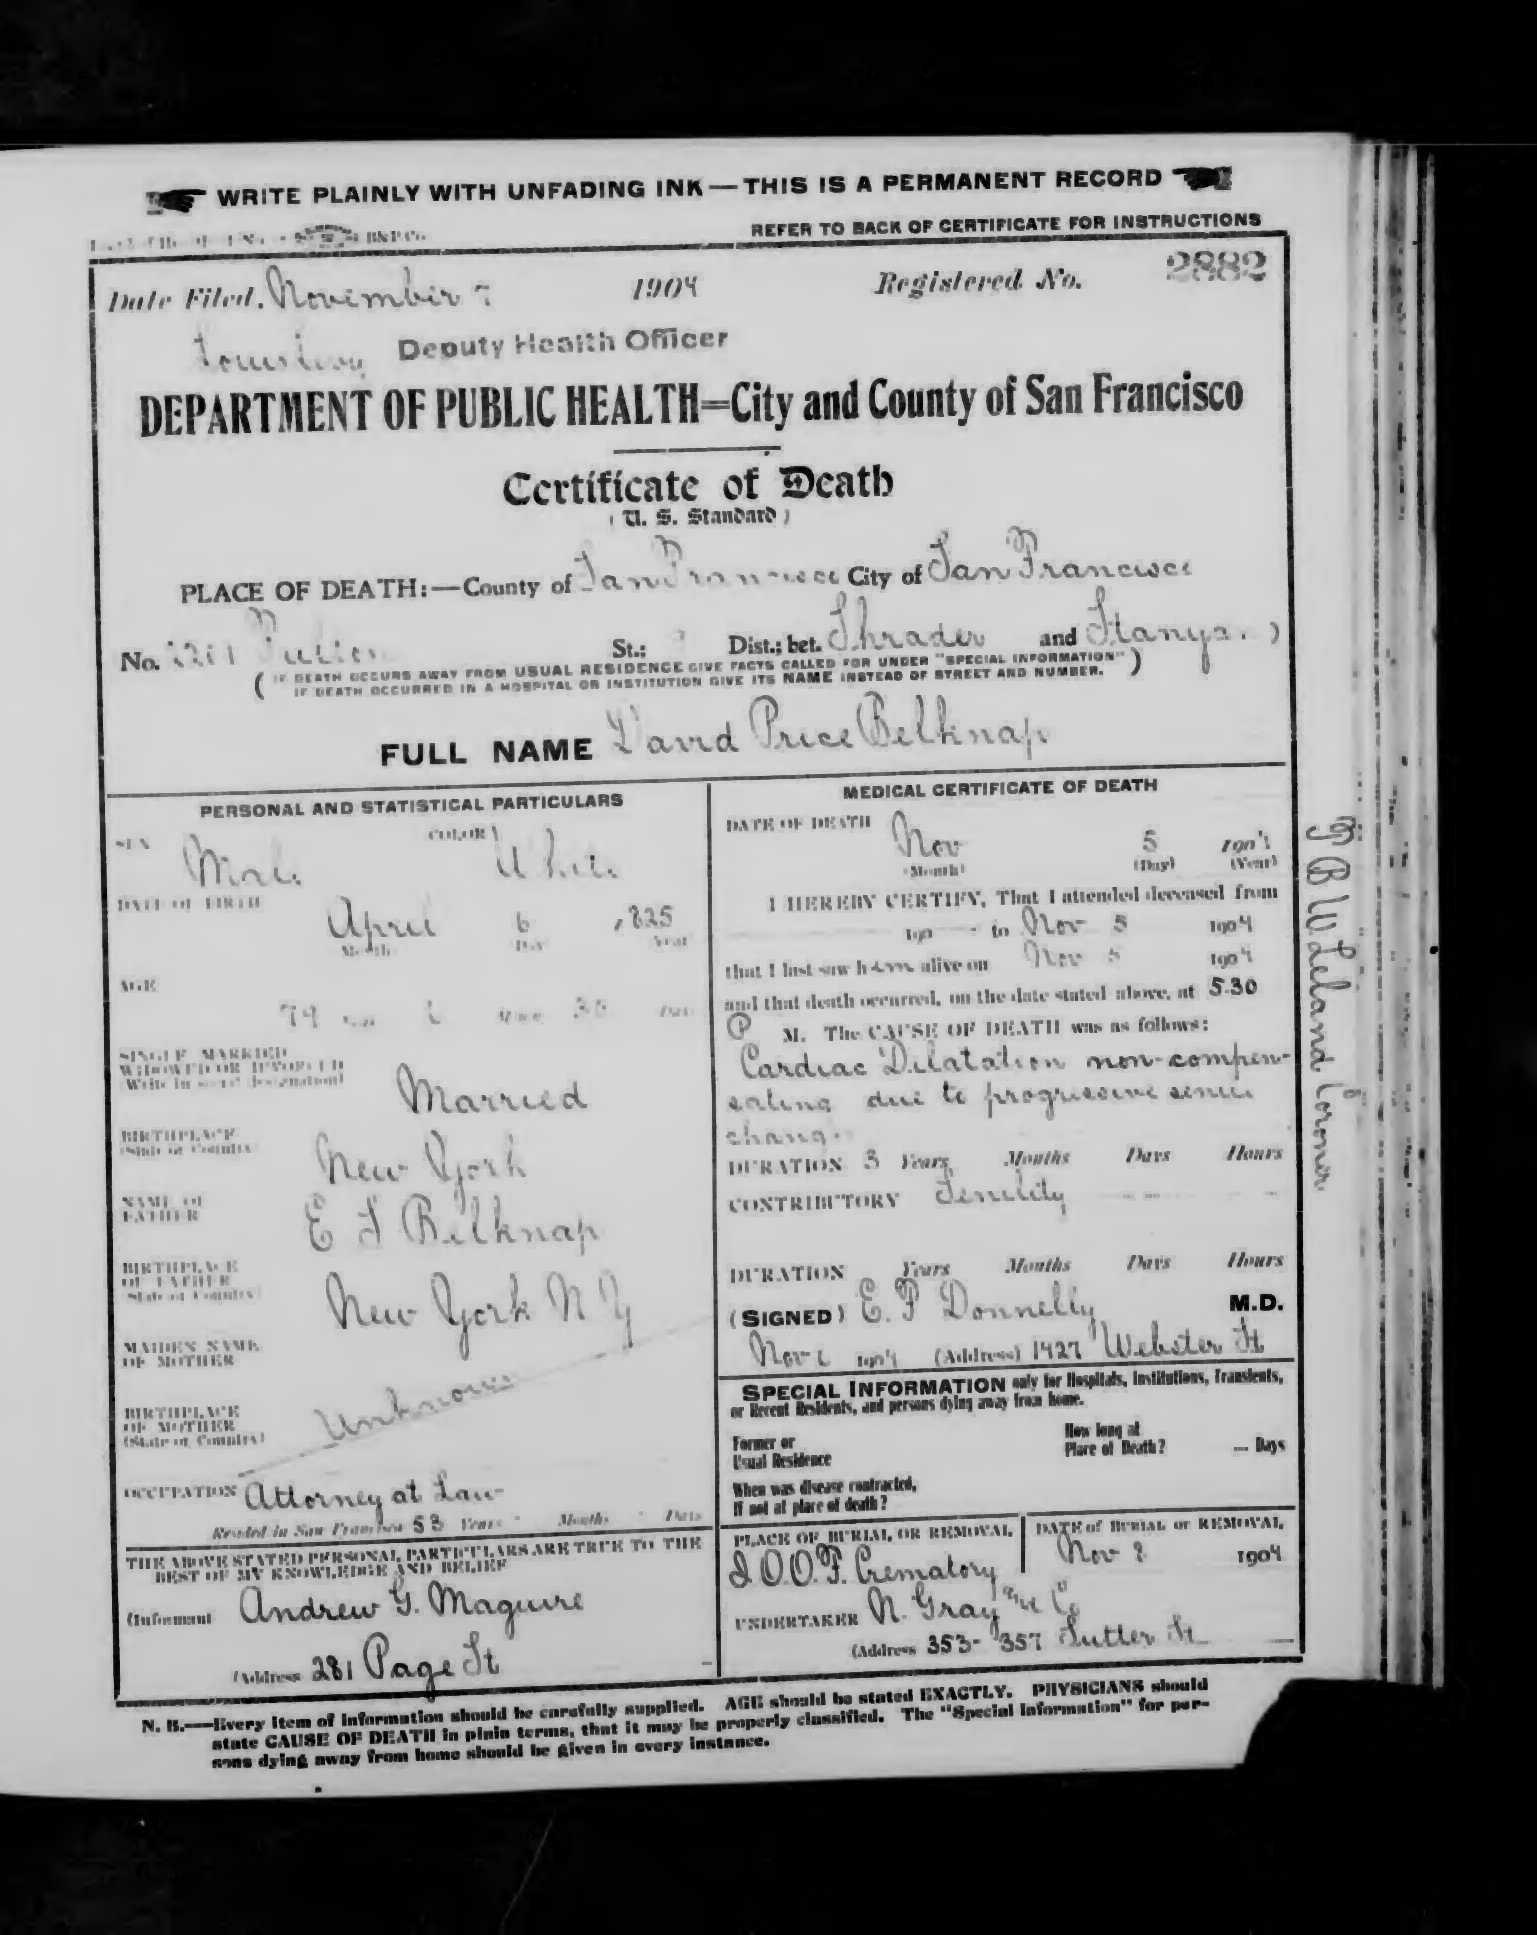 WRITE PLAINLY WITH UNFADING INK — THIS IS A PERMANENT RECORD
REFER TO BACK OF CERTIFICATE FOR INSTRUCTIONS
Date Filed, November 7 1904 Registered No. 2882
Deputy Health Officer
DEPARTMENT OF PUBLIC HEALTH=City and County of San Francisco
Certificate of Death
( U. S. Standard )
PLACE OF DEATH:—County of San Francisco City of San Francisco
No. St.; Dist.; bet. Shrader and Stanyan )
( IF DEATH OCCURS AWAY FROM USUAL RESIDENCE GIVE FACTS CALLED FOR UNDER "SPECIAL INFORMATION"
IF DEATH OCCURRED IN A HOSPITAL OR INSTITUTION GIVE ITS NAME INSTEAD OF STREET AND NUMBER. )
FULL NAME David Price Belknap
PERSONAL AND STATISTICAL PARTICULARS
SEX Male COLOR White
DATE OF BIRTH
April 6 1825
Month Day Year
AGE
79
SINGLE, MARRIED
WIDOWED OR DIVORCED
(Write in social designation)
Married
BIRTHPLACE
(State or Country)
New York
NAME OF
FATHER
E S Belknap
BIRTHPLACE
OF FATHER
(State or Country)
New York N Y
MAIDEN NAME
OF MOTHER
Unknown
BIRTHPLACE
OF MOTHER
(State or Country)
OCCUPATION Attorney at Law
Resided in San Francisco 53 Years Months Days
THE ABOVE STATED PERSONAL PARTICULARS ARE TRUE TO THE
BEST OF MY KNOWLEDGE AND BELIEF
(Informant Andrew G. Maguire
(Address 281 Page St
MEDICAL CERTIFICATE OF DEATH
DATE OF DEATH
Nov 5 1904
(Month) (Day) (Year)
I HEREBY CERTIFY, That I attended deceased from
190 to Nov 5 1904
that I last saw him alive on Nov 5 1904
and that death occurred, on the date stated above, at 5.30
P M. The CAUSE OF DEATH was as follows:
Cardiac Dilatation non-compen-
sating due to progressive senile
DURATION 3 Years Months Days Hours
CONTRIBUTORY Senility
DURATION Years Months Days Hours
(SIGNED) E. P Donnelly M.D.
Nov 1904 (Address) 1427 Webster St
SPECIAL INFORMATION only for Hospitals, Institutions, Transients,
or Recent Residents, and persons dying away from home.
Former or
Usual Residence
How long at
Place of Death? Days
When was disease contracted,
If not at place of death?
PLACE OF BURIAL OR REMOVAL
I O.O.F. Crematory
DATE of BURIAL or REMOVAL
Nov 8 1904
UNDERTAKER N. Gray and Co
(Address 353-357 Sutter St
N. B.—Every item of information should be carefully supplied. AGE should be stated EXACTLY. PHYSICIANS should
state CAUSE OF DEATH in plain terms, that it may be properly classified. The "Special Information" for per-
sons dying away from home should be given in every instance.
T B W Leland Coroner